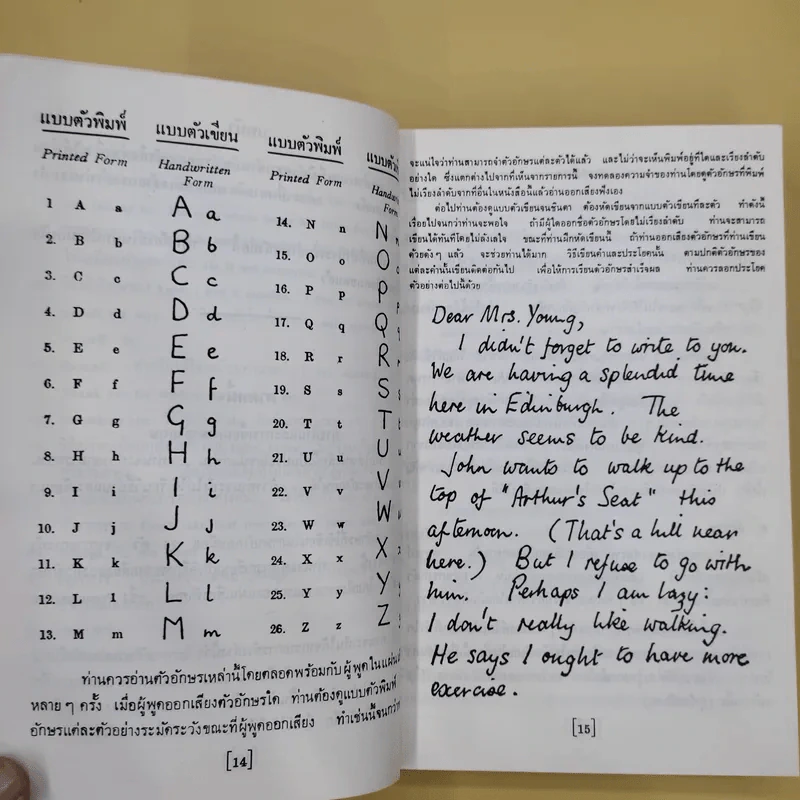 แบบตัวพิมพ์
Printed Form
แบบตัวเขียน
Handwritten
Form
1 A a A a
2. B b B b
3. C c C c
4. D d D d
5. E e E e
6. F f F f
7. G g G g
8. H h H h
9. I i I i
10. J j J j
11. K k K k
12. L l L l
13. M m M m
แบบตัวพิมพ์
Printed Form
Handwritten
Form
14. N n N
15. O o O
16. P p P p
17. Q q Q q
18. R r R
19. S s S
20. T t T
21. U u U
22. V v V
23. W w W
24. X x X
25. Y y Y
26. Z z Z
ท่านควรอ่านตัวอักษรเหล่านี้โดยตลอดพร้อมกับผู้พูดใน
หลายๆ ครั้ง เมื่อผู้พูดออกเสียงตัวอักษรใด ท่านต้องดูแบบตัวพิมพ์
อักษรแต่ละตัวอย่างระมัดระวังขณะที่ผู้พูดออกเสียง ทำเช่นนี้
[14]
จะแน่ใจว่าท่านสามารถจำตัวอักษรแต่ละตัวได้แล้ว และไม่ว่าจะเห็นพิมพ์อยู่ที่ใดและเรียงลำดับ
อย่างใด ซึ่งแตกต่างไปจากที่เห็นจากรายการนี้ จงทดลองความจำของท่านโดยดูตัวอักษรที่พิมพ์
ไม่เรียงลำดับจากที่อื่นในหนังสือนี้แล้วอ่านออกเสียงฟังเอง
ต่อไปท่านต้องดูแบบตัวเขียนจนชินตา ต้องหัดเขียนจากแบบตัวเขียนทีละตัว ทำดังนี้
เรื่อยไปจนกว่าท่านจะพอใจ ถ้ามีผู้ใดออกชื่อตัวอักษรโดยไม่เรียงลำดับ ท่านจะสามารถ
เขียนได้ทันทีโดยไม่ลังเลใจ ขณะที่ท่านฝึกหัดเขียนนี้ ถ้าท่านออกเสียงตัวอักษรที่ท่านเขียน
ด้วยดังๆ แล้ว จะช่วยท่านได้มาก วิธีเขียนคำและประโยคนั้น ตามปกติตัวอักษรของ
แต่ละคำนั้นเขียนติดต่อกันไป เพื่อให้การเรียนตัวอักษรสำเร็จผล ท่านควรลอกประโยค
ตัวอย่างต่อไปนี้ด้วย
Dear Mrs. Young,
I didn't forget to write to you.
We are having a splendid time
here in Edinburgh. The
weather seems to be kind.
John wants to walk up to the
top of "Arthur's Seat" this
afternoon. (That's a hill near
here.) But I refuse to go with
him. Perhaps I am lazy:
I don't really like walking.
He says I ought to have more
exercise.
[15]